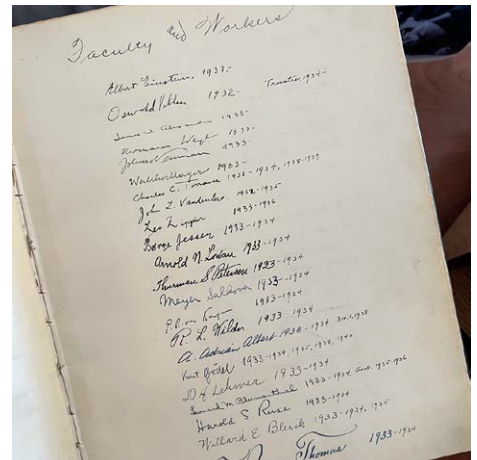 Faculty and Workers
Albert Einstein. 1933-
Oswald Veblen 1932- Trustee, 1934-
James W. Alexander 1933-
Hermann Weyl 1933-
John v Neumann 1933-
Walther Mayer 1933-
Charles C. Torrance 1933-1934, 1938-1939
John Z. Vanderslice
Leo Zippin 1933-1936
Börge Jessen 1933-1934
Arnold N. Lowan 1933-1934
Thurman S. Peterson 1933-1934
Meyer Salkover 1933-1934
1933-1934
R. L. Wilder 1933-1934
A. Adrian Albert 1933-1934
Kurt Gödel 1933-1934, 1935, 1938, 1940
D H Lehmer 1933-1934
Leonard M. Blumenthal 1933-1934 1935-1936
Harold S. Ruse 1933-1934
Willard E Bleick 1933-1934, 1935
Thomas 1933-1934